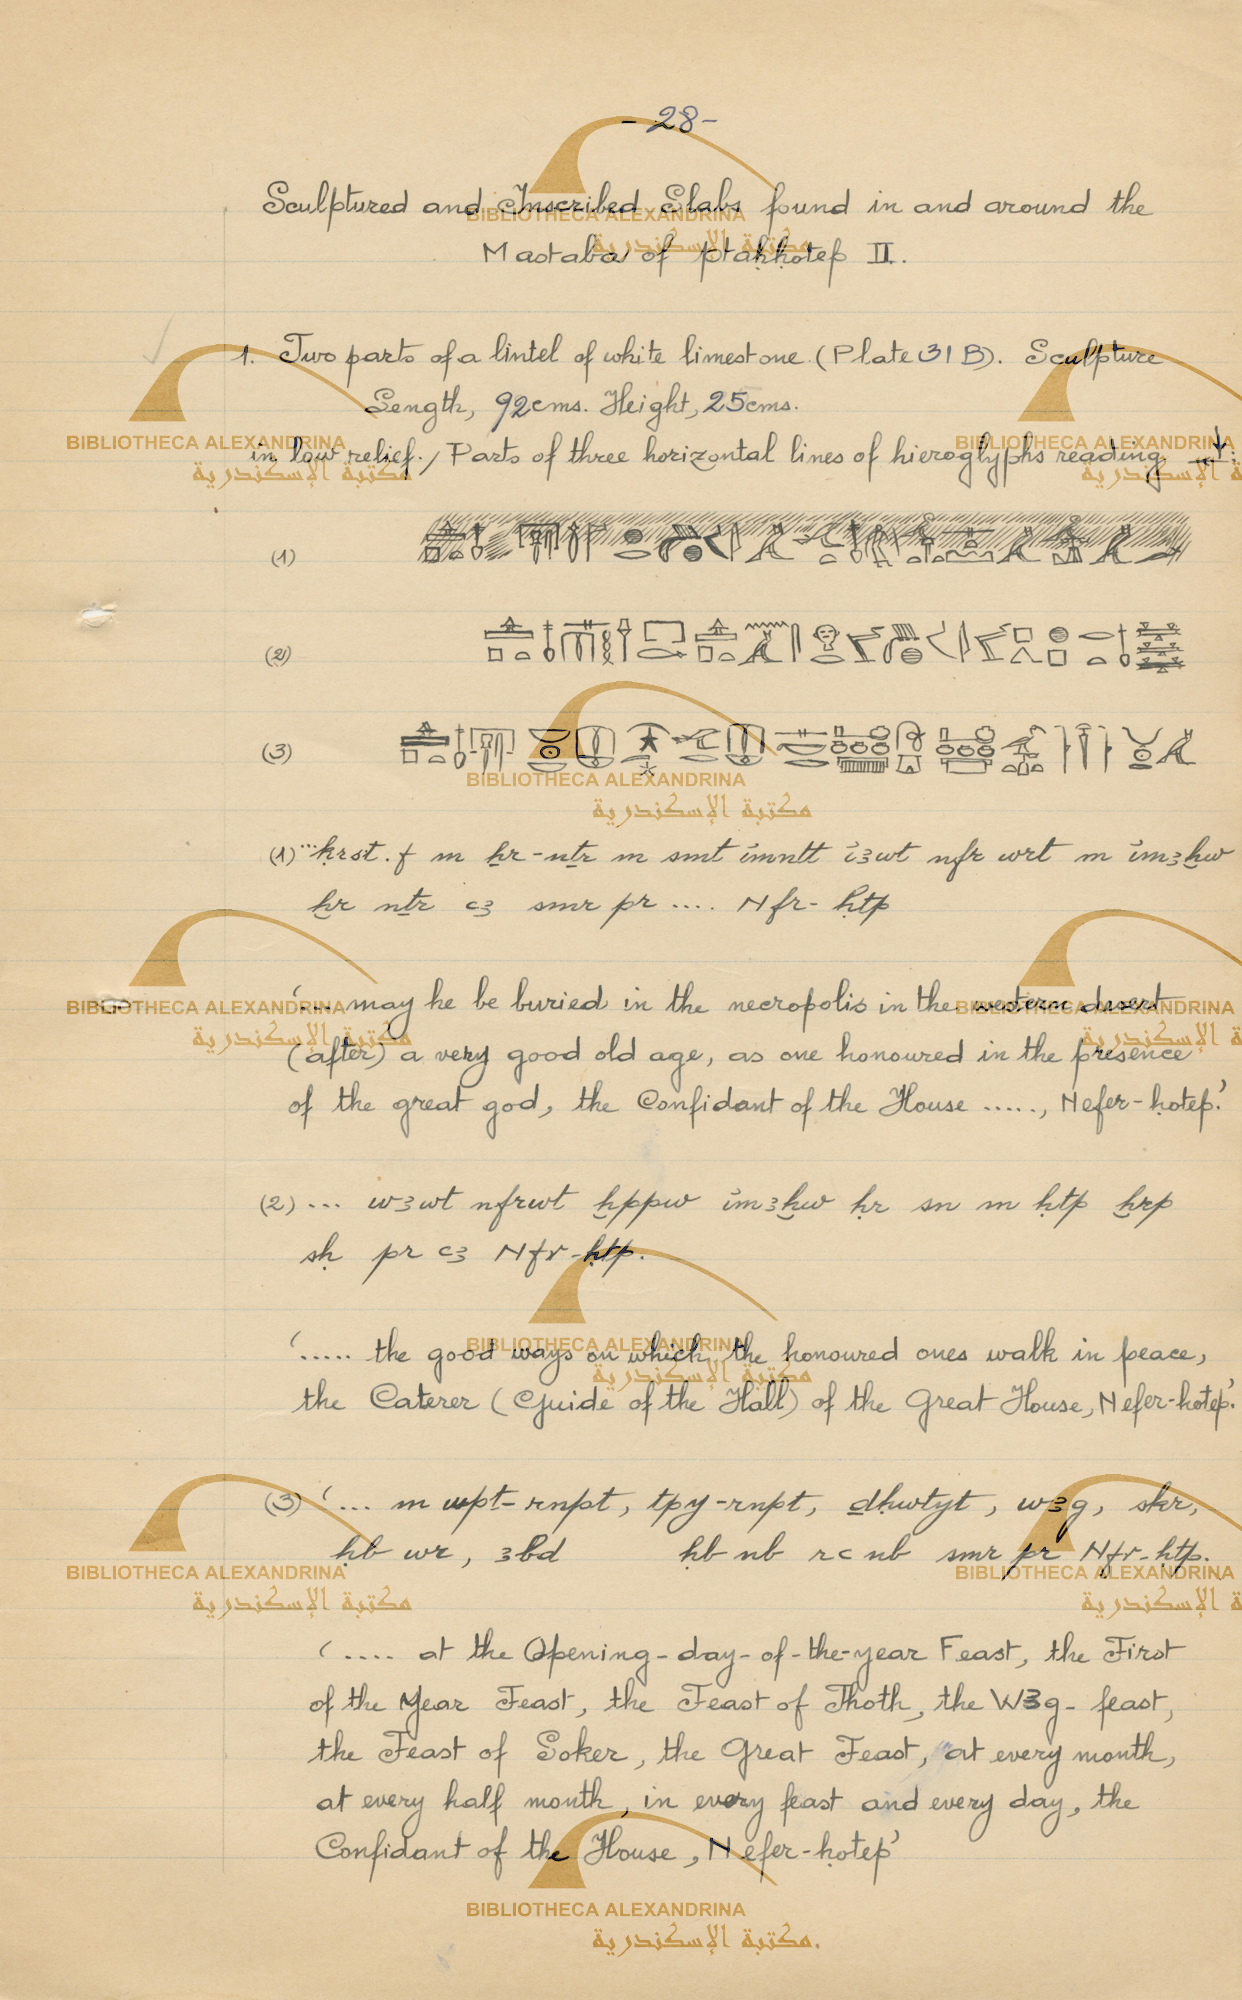 - 28 -
Sculptured and Inscribed Slabs found in and around the
Mastaba of Ptaḥḥotep II.
1. Two parts of a lintel of white limestone (Plate 31 B). Sculpture
Length, 92cms. Height, 25cms.
in low relief. / Parts of three horizontal lines of hieroglyphs reading
(1)
(2)
(3)
(1) ... ḳrst.f m ẖr-nṯr m smt ỉmntt ỉꜣwt nfr wrt m ỉmꜣḫw
ḫr nṯr ꜥꜣ smr pr .... Nfr-ḥtp
'... may he be buried in the necropolis in the western desert
(after) a very good old age, as one honoured in the presence
of the great god, the Confidant of the House ....., Nefer-ḥotep.'
(2) ... wꜣwt nfrwt ḫppw ỉmꜣḫw ḥr sn m ḥtp ḫrp
sḥ pr ꜥꜣ Nfr-ḥtp.
'..... the good ways on which the honoured ones walk in peace,
the Caterer (Guide of the Hall) of the Great House, Nefer-ḥotep.'
(3) '... m wpt-rnpt, tpy-rnpt, ḏḥwtyt, wꜣg, skr,
ḥb wr, ꜣbd ḥb nb rꜥ nb smr pr Nfr-ḥtp.
'.... at the Opening-day-of-the-year Feast, the First
of the Year Feast, the Feast of Thoth, the Wꜣg-feast,
the Feast of Soker, the Great Feast, at every month,
at every half month, in every feast and every day, the
Confidant of the House, Nefer-ḥotep'
BIBLIOTHECA ALEXANDRINA
مكتبة الإسكندرية